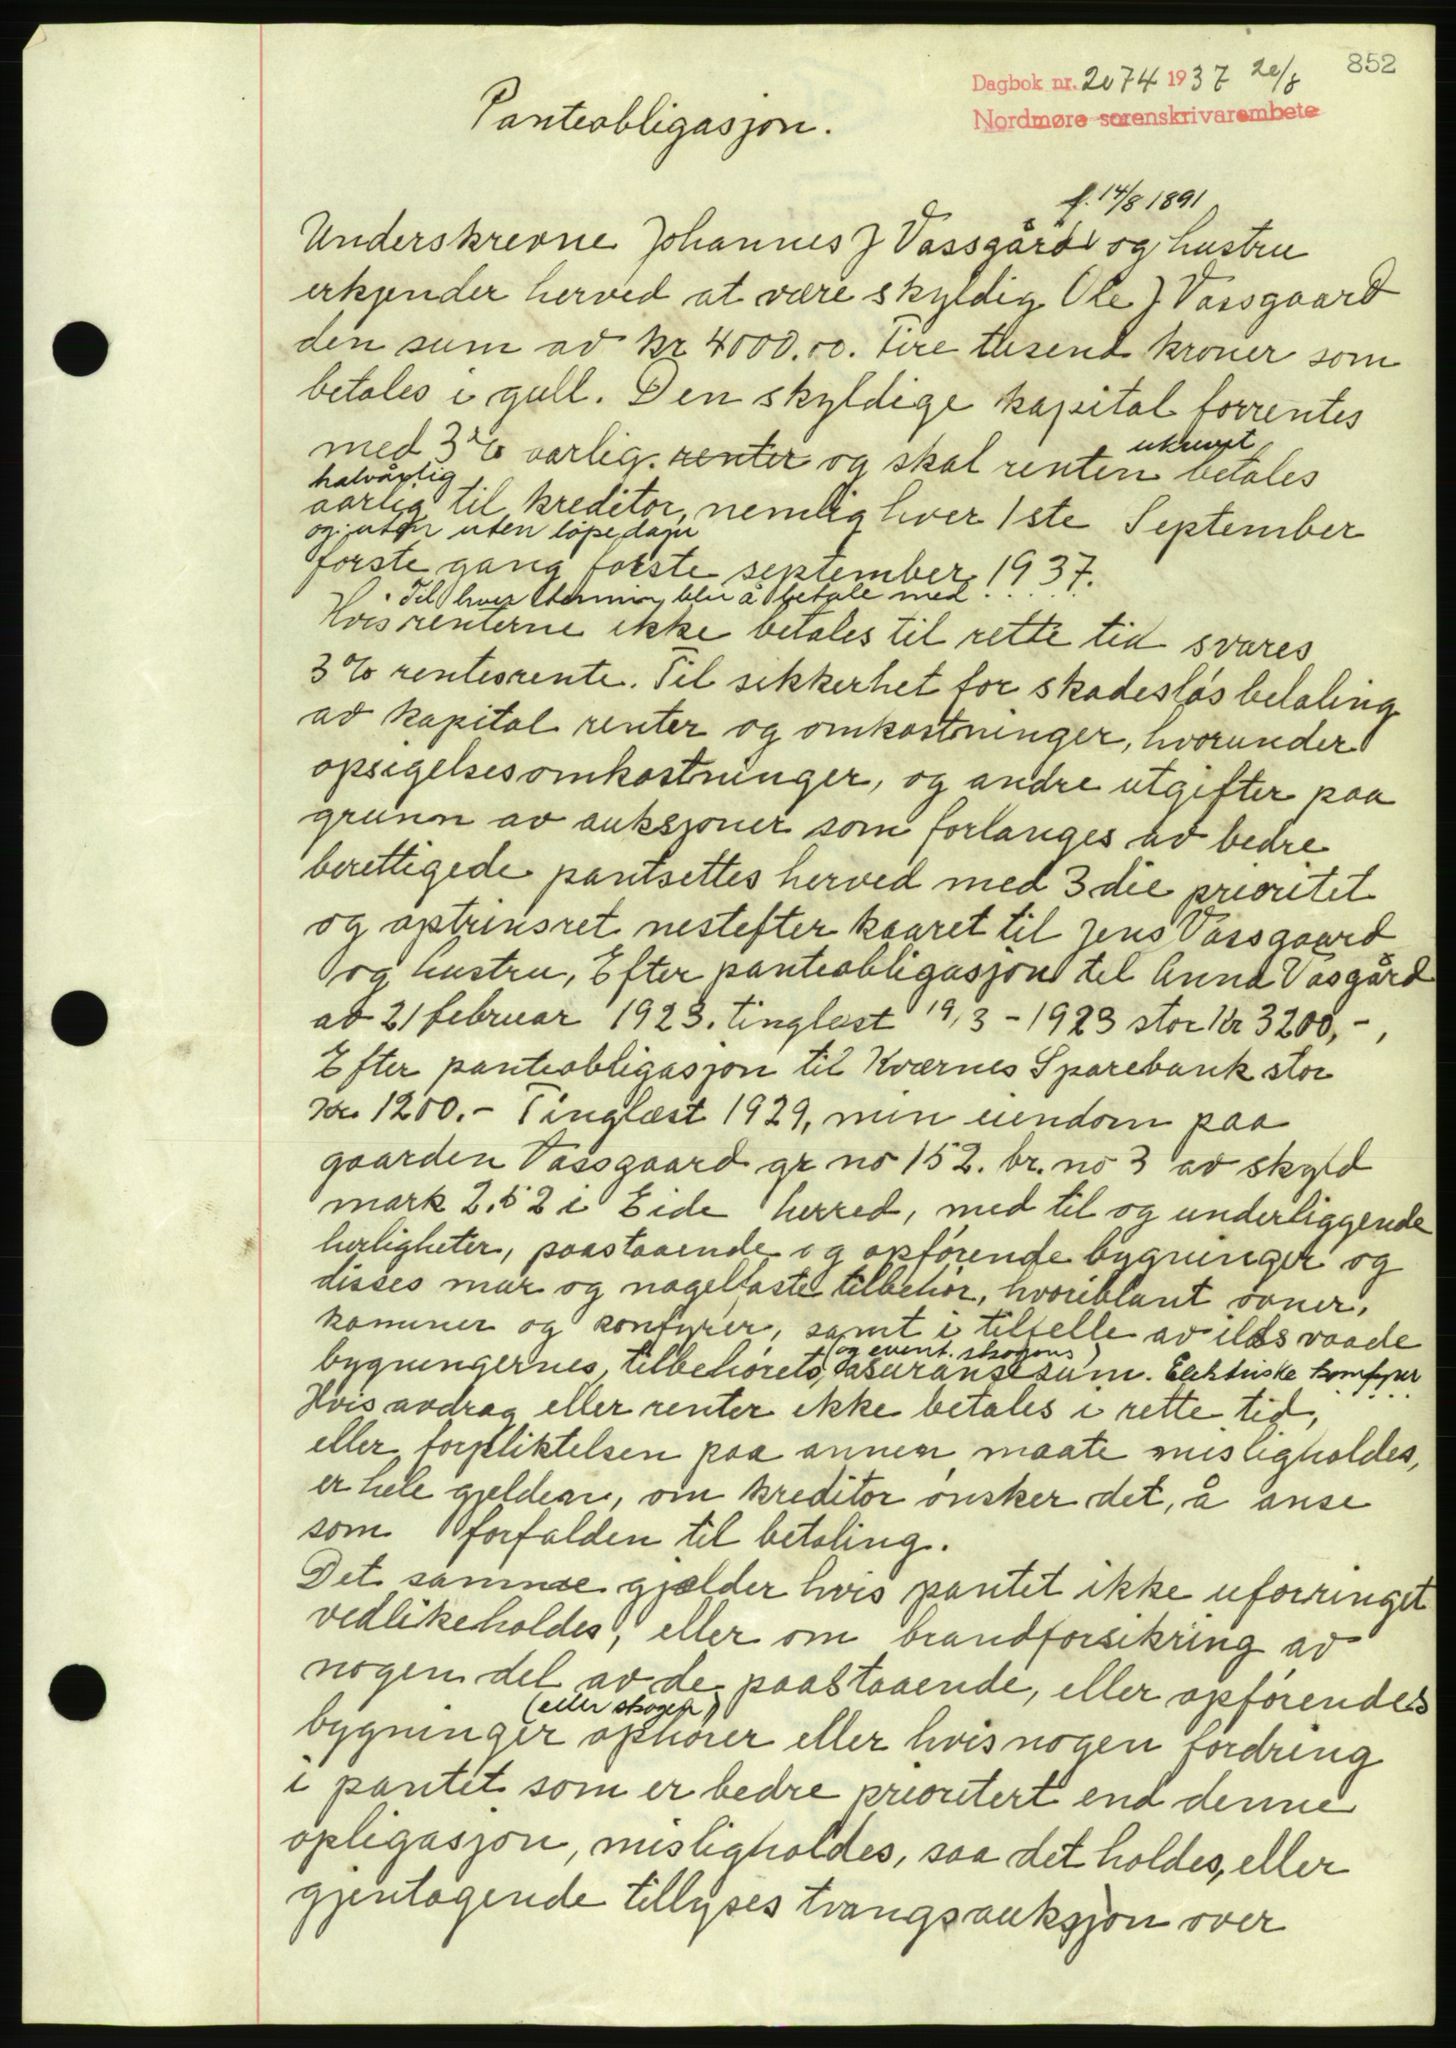 852
Dagbok nr. 2074 1937 20/8
Nordmøre sorenskrivarembete
Panteobligasjon.
f. 14/8 1891
Underskrevne Johannes J Vassgård og hustru
erkjender herved at være skyldig Ole J Vassgaard
den sum av kr 4000.00. Fire tusend kroner som
betales i gull. Den skyldige kapital forrentes
med 3% aarlig. renter og skal renten ukrevet betales
halvårlig
aarlig til kreditor, nemlig hver 1ste September
og uten uten løpedage
første gang første september 1937.
Til hver termin blir å betale med .....
Hvis renterne ikke betales til rette tid svares
3% rentesrente. Til sikkerhet for skadesløs betaling
av kapital renter og omkostninger, hvorunder
opsigelsesomkostninger, og andre utgifter paa
grunn av auksjoner som forlanges av bedre
berettigede pantsettes herved med 3die prioritet
og optrinsret nestefter kaaret til Jens Vassgaard
og hustru, Efter panteobligasjon til Anna Vasgård
av 21 februar 1923. tinglæst 19/3 - 1923 stor Kr 3200,-,
Efter panteobligasjon til Kværnes Sparebank stor
Kr. 1200.- Tinglæst 1929, min eiendom paa
gaarden Vassgaard gr no 152. br. no 3 av skyld
mark 2.52 i Eide herred, med til og underliggende
herligheter, paastaaende og opførende bygninger og
disses mur og nagelfaste tilbehør, hvoriblant ovner,
kaminer og komfyrer, samt i tilfelle av ildsvaade
bygningernes, tilbehørets, (og event. skogens) asuransesum. Elektriske komfyrer ...
Hvis avdrag eller renter ikke betales i rette tid,
eller forpliktelsen paa annen maate misligholdes,
er hele gjelden, om kreditor ønsker det, å anse
som forfalden til betaling.
Det samme gjælder hvis pantet ikke uforringet
vedlikeholdes, eller om brandforsikring av
nogen del av de paastaaende, eller opførendes
(eller skogen)
bygninger ophører eller hvis nogen fordring
i pantet som er bedre prioritert end denne
opligasjon, misligholdes, saa det holdes, eller
gjentagende tillyses tvangsauksjon over